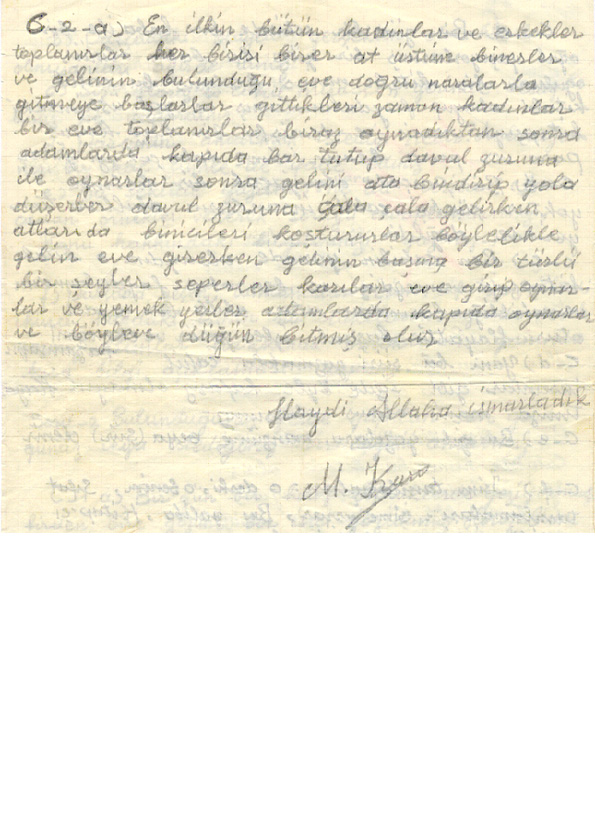 6-2-a) En ilkin bütün kadınlar ve erkekler
toplanırlar her birisi birer at üstüne binerler
ve gelinin bulunduğu, eve doğru naralarla
gitmeye başlarlar gittikleri zaman kadınlar
bir eve toplanırlar biraz oynadıktan sonra
adamlarda kapıda bar tutup davul zuruna
ile oynarlar sonra gelini ata bindirip yola
düşerler davul zuruna çala çala gelirken
atlarıda binicileri kostururlar böylelikle
gelin eve girerken gelinin başına bir türlü
bir şeyler seperler karılar eve girip oynar-
lar ve yemek yerler adamlarda kapıda oynarlar
ve böyleve düğün bitmiş olur
Haydi Allaha ısmarladık
M.